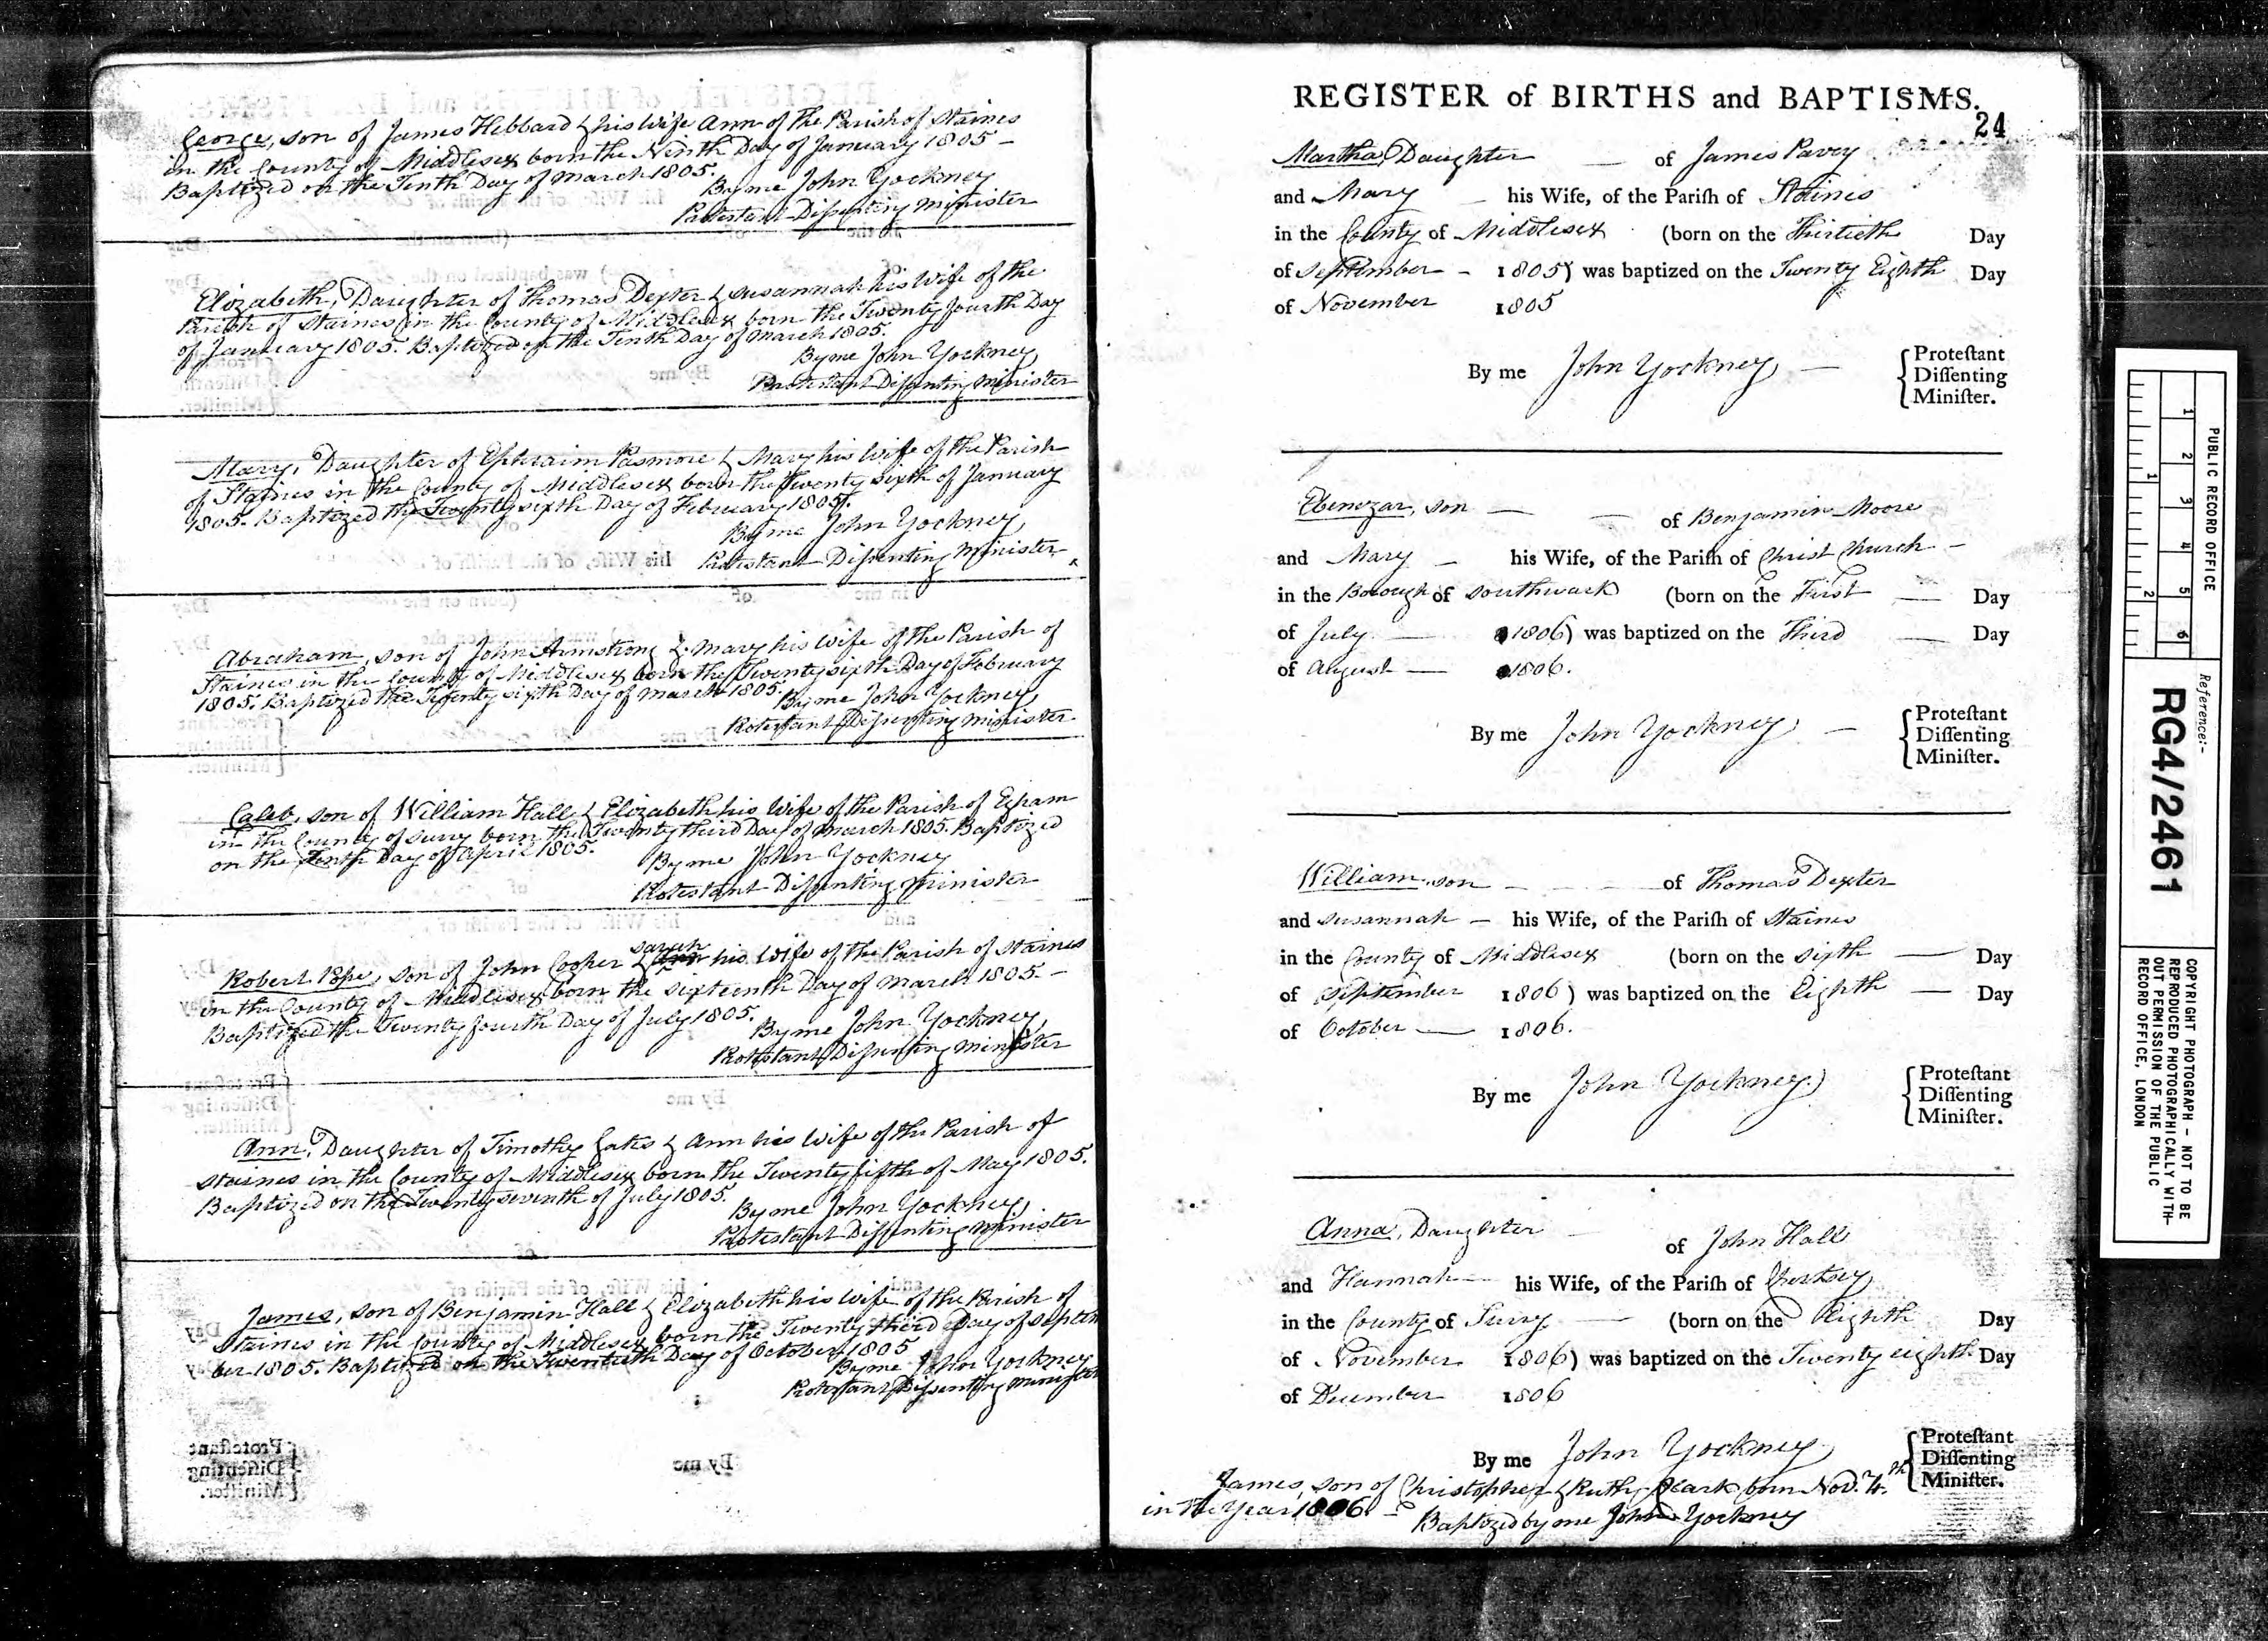 George, son of James Hebbard & his Wife Ann of the Parish of Staines
in the County of Middlesex born the Ninth Day of January 1805 -
Baptized on the Tenth Day of March 1805.
By me John Yockney
Protestant Dissenting Minister
Elizabeth, Daughter of Thomas Dexter & Susannah his Wife of the
Parish of Staines in the County of Middlesex born the Twenty fourth Day
of January 1805. Baptized on the Tenth Day of March 1805.
By me John Yockney
Protestant Dissenting Minister
Mary, Daughter of Ephraim Pasmore & Mary his Wife of the Parish
of Staines in the County of Middlesex born the Twenty sixth of January
1805. Baptized the Twenty sixth Day of February 1805.
By me John Yockney
Protestant Dissenting Minister
Abraham, son of John Armstrong & Mary his Wife of the Parish of
Staines in the County of Middlesex born the Twenty sixth Day of February
1805. Baptized the Twenty sixth Day of March 1805.
By me John Yockney
Protestant Dissenting Minister
Caleb, son of William Hall & Elizabeth his Wife of the Parish of Egham
in the County of Surry born the Twenty third Day of March 1805. Baptized
on the Tenth Day of April 1805.
By me John Yockney
Protestant Dissenting Minister
Sarah
Robert Pope, son of John Cooper & his Wife of the Parish of Staines
in the County of Middlesex born the sixteenth Day of March 1805. -
Baptized the Twenty fourth Day of July 1805.
By me John Yockney
Protestant Dissenting Minister
Ann, Daughter of Timothy & Ann his Wife of the Parish of
Staines in the County of Middlesex born the Twenty fifth of May 1805.
Baptized on the Twenty seventh of July 1805.
By me John Yockney
Protestant Dissenting Minister
James, son of Benjamin Hall & Elizabeth his Wife of the Parish of
Staines in the County of Middlesex born the Twenty third Day of Septem
ber 1805. Baptized on the Twentieth Day of October 1805
By me John Yockney
Protestant Dissenting Minister
REGISTER of BIRTHS and BAPTISMS.
24
Martha, Daughter — of James Pavey
and Mary — his Wife, of the Pariſh of Staines
in the County of Middlesex (born on the Thirtieth Day
of September - 1805) was baptized on the Twenty Eighth Day
of November 1805
By me John Yockney —
Proteſtant
Diſſenting
Miniſter.
Ebenezar, son — — of Benjamin Moore
and Mary — his Wife, of the Pariſh of Christ Church -
in the Borough of Southwark (born on the First — Day
of July — 1806) was baptized on the Third — Day
of August — 1806.
By me John Yockney —
Proteſtant
Diſſenting
Miniſter.
William, son - - of Thomas Dexter
and Susannah — his Wife, of the Pariſh of Staines
in the County of Middlesex (born on the sixth — Day
of September 1806) was baptized on the Eighth — Day
of October — 1806.
By me John Yockney
Proteſtant
Diſſenting
Miniſter.
Anna, Daughter - of John Hall
and Hannah — his Wife, of the Pariſh of Chertsey
in the County of Surry — (born on the Eighth Day
of November 1806) was baptized on the Twenty eighth Day
of December 1806
By me John Yockney
Proteſtant
Diſſenting
Miniſter.
James, son of Christopher & Ruth Clark born Nov. 4th
in the Year 1806. -
Baptized by me John Yockney
PUBLIC RECORD OFFICE
1 2 3 4 5 6
1 2
Reference:-
RG4/2461
COPYRIGHT PHOTOGRAPH - NOT TO BE
REPRODUCED PHOTOGRAPHICALLY WITH-
OUT PERMISSION OF THE PUBLIC
RECORD OFFICE, LONDON